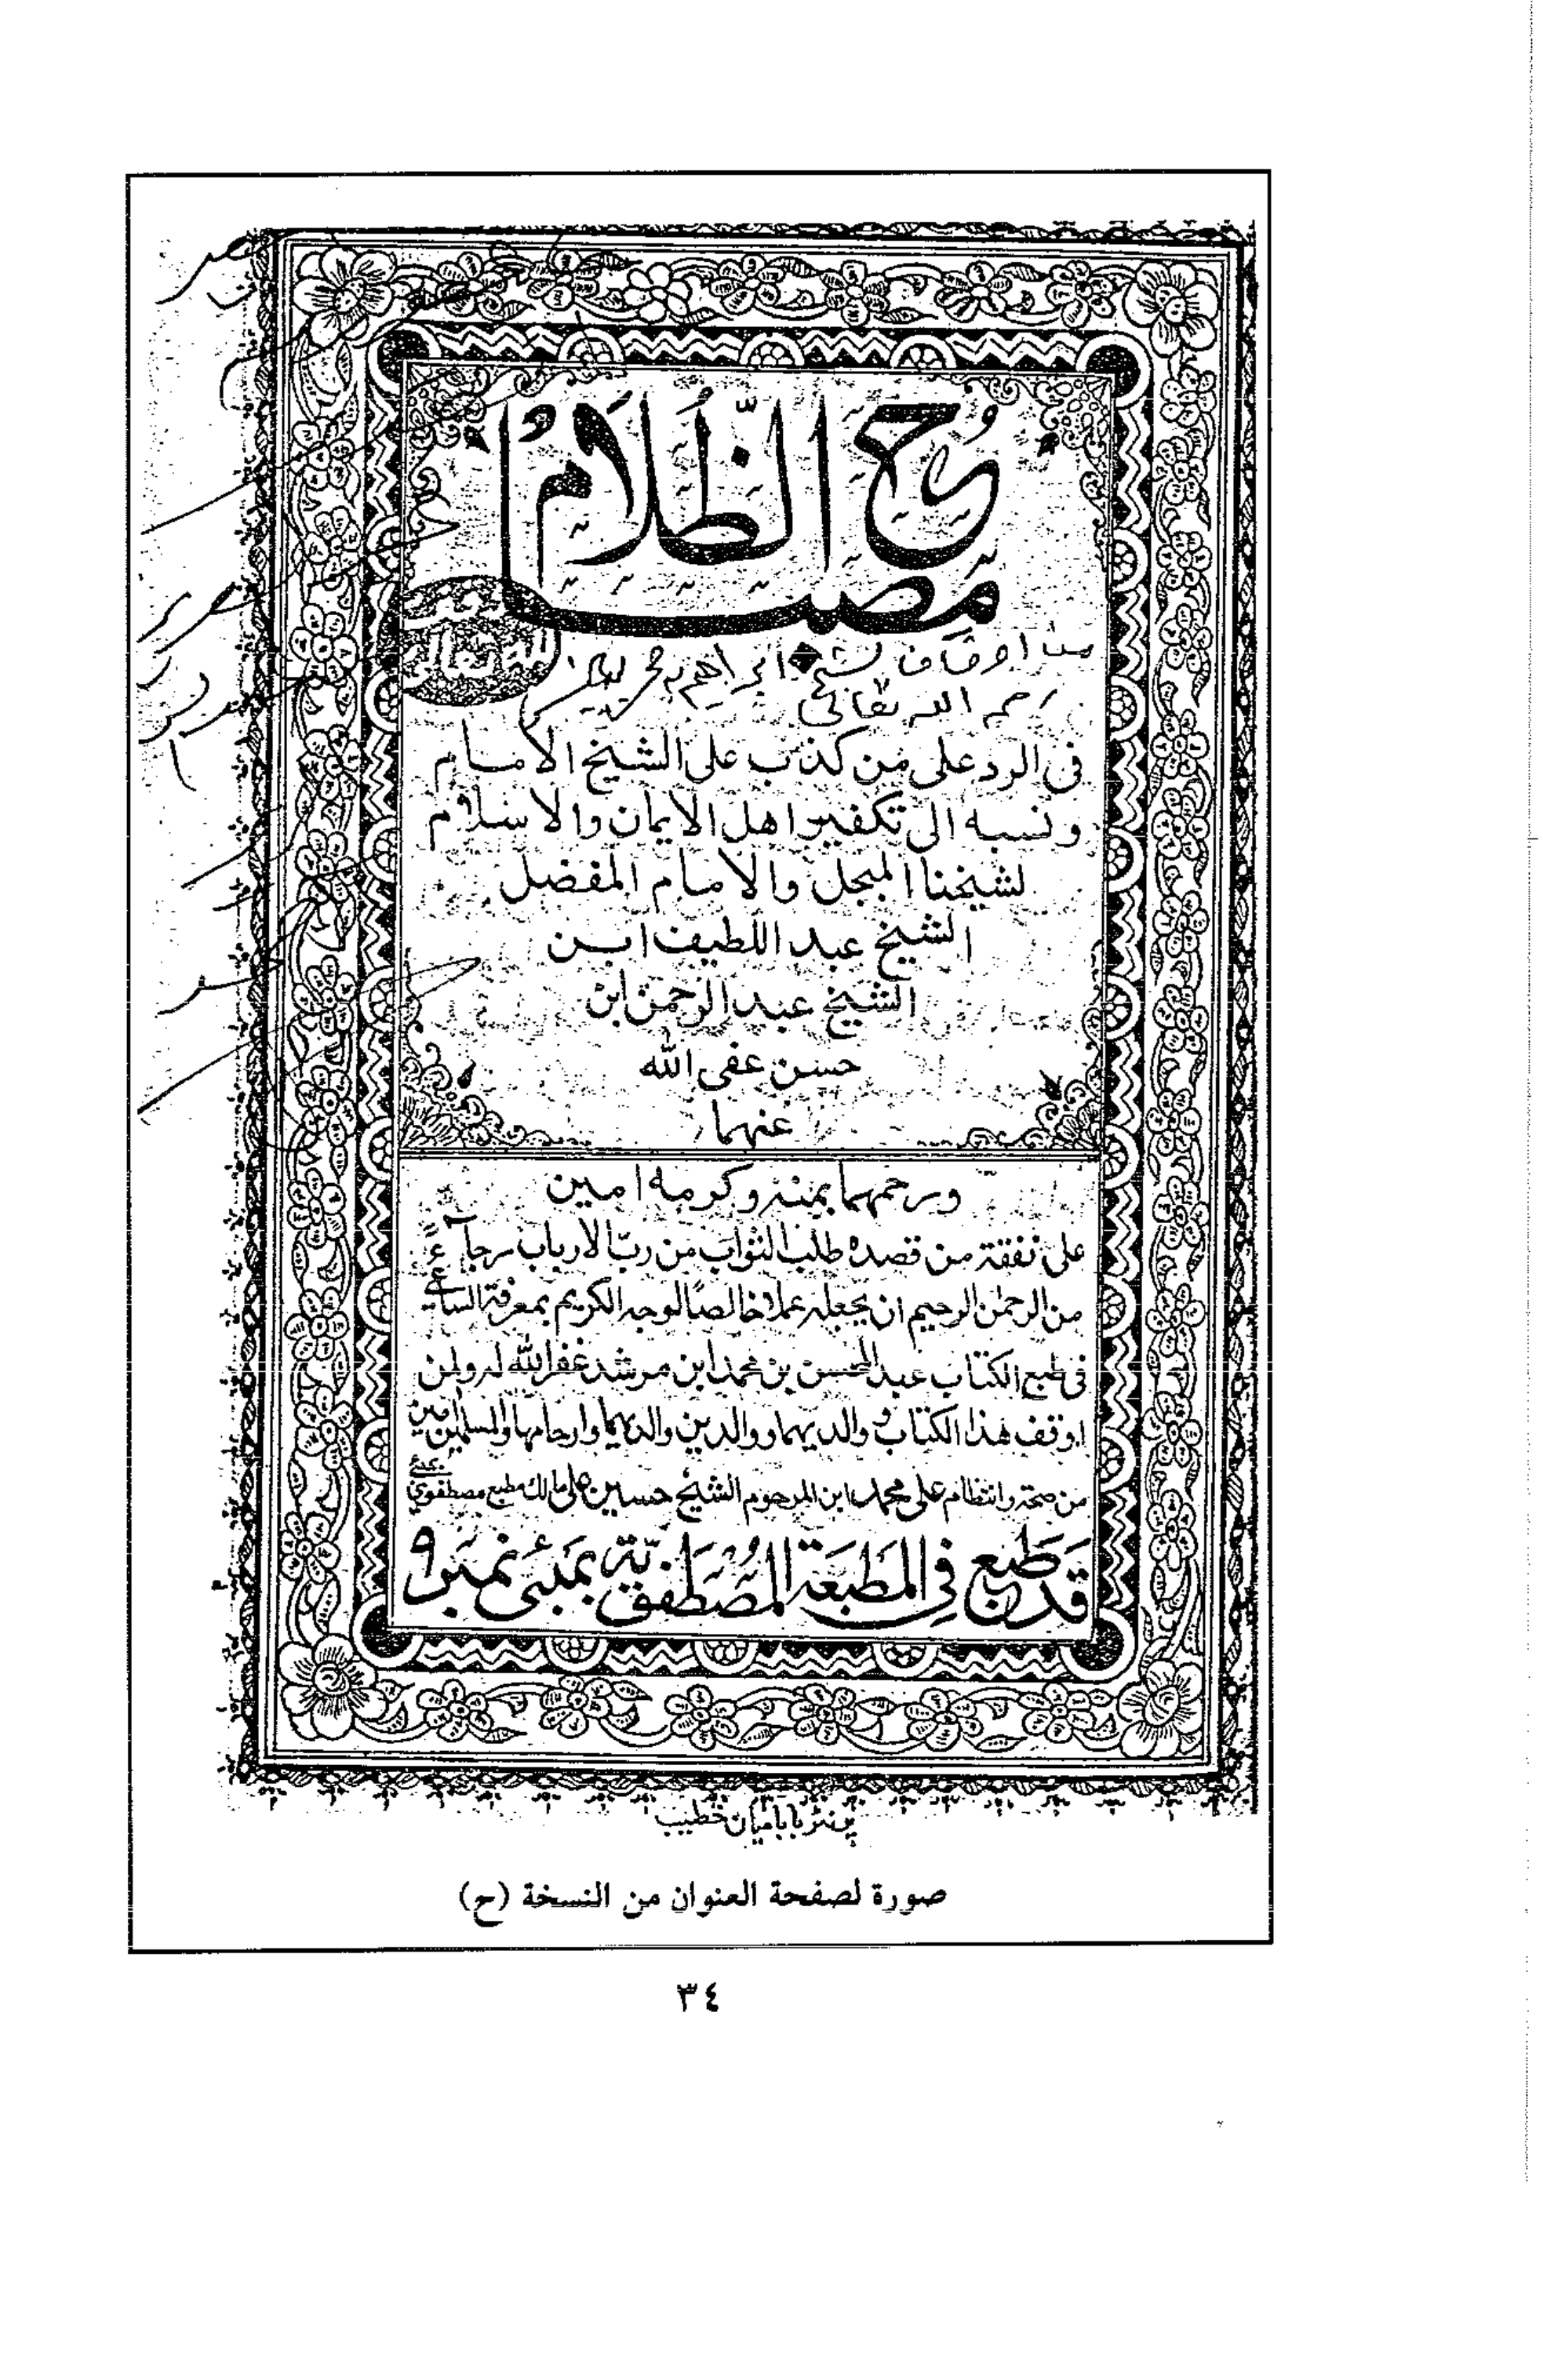 مصباح الظلام
من اوقاف الشيخ ابراهيم
رحمه الله تعالى
فى الرد على من كذب على الشيخ الامام
ونسبه الى تكفير اهل الايمان والاسلام
لشيخنا المبجل والامام المفضل
الشيخ عبد اللطيف ابن
الشيخ عبد الرحمن ابن
حسن عفى الله
عنهما
ويرحمهما بمنه وكرمه امين
على نفقة من قصده طلب الثواب من ربّ الارباب رجآءً
من الرحمٰن الرحيم ان يجعله عملا خالصًا لوجه الكريم بمعرفة الساعى
فى طبع الكتاب عبد المحسن بن محمد ابن مرشد غفر الله له ولمن
اوقف هذا الكتاب و والديهما ووالدين والديهما وارحامها والمسلمين امين
من صحة وانتظام على محمد ابن المرحوم الشيخ حسين على مالك مطبع مصطفوي بمبئ
قد طبع في المَطبَعَة المُصْطَفَوِيَّة بمَبَئ نمبر ٩
پرنٹر بابا ميان خطيب
صورة لصفحة العنوان من النسخة (ح)
٣٤